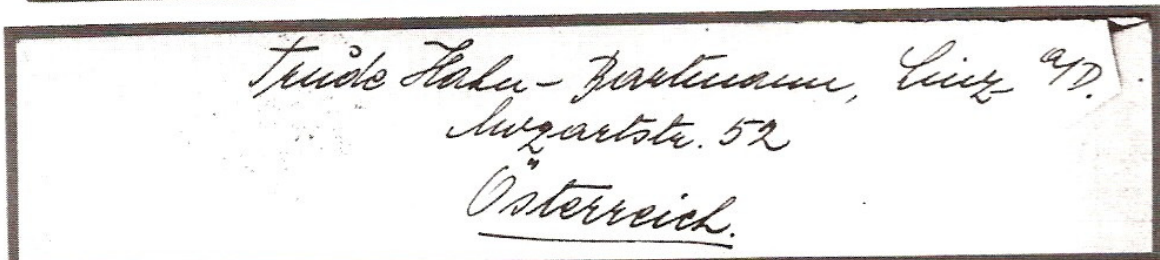 Trude Hahn-Bartmann, Linz a/D.
Mozartstr. 52
Österreich.